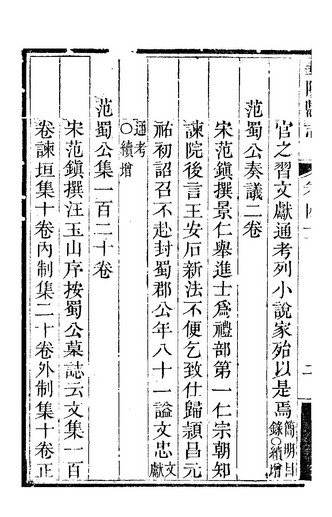 官之習文獻通考列小說家殆以是焉簡明目錄○續增
范蜀公奏議二卷
宋范鎮撰景仁舉進士爲禮部第一仁宗朝知
諫院後言王安石新法不便乞致仕歸潁昌元
祐初詔召不赴封蜀郡公年八十一謚文忠文獻
通考○續增
范蜀公集一百二十卷
宋范鎮撰汪玉山序按蜀公墓誌云文集一百
卷諫垣集十卷內制集二十卷外制集十卷正